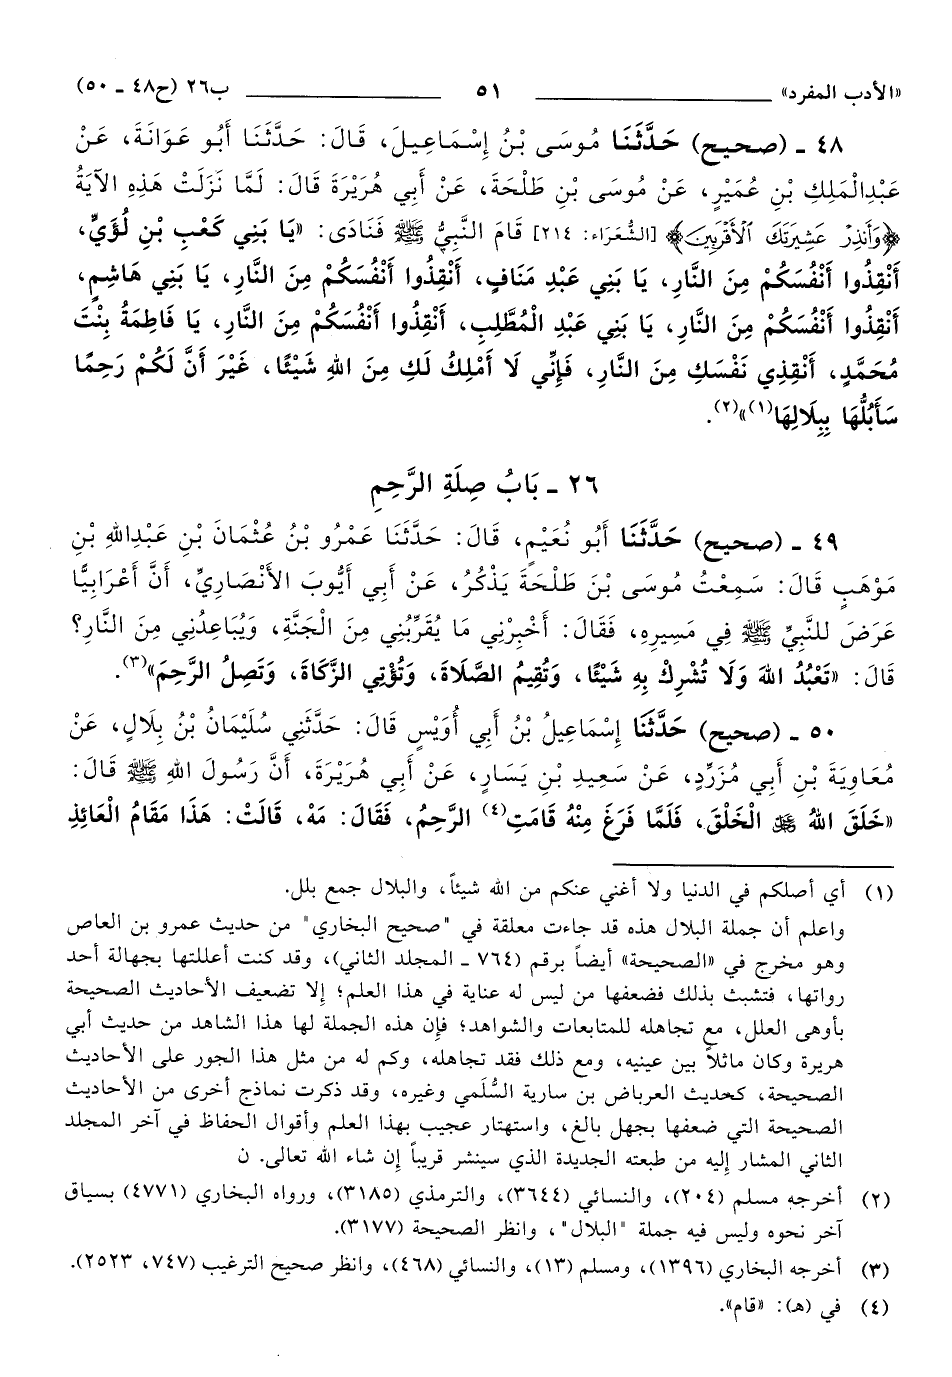 «الأدب المفرد» ٥١ ب٢٦ (ح٤٨ ـ ٥٠)
٤٨ ـ (صحيح) حَدَّثَنَا مُوسَى بْنُ إِسْمَاعِيلَ، قَالَ: حَدَّثَنَا أَبُو عَوَانَةَ، عَنْ
عَبْدِالْمَلِكِ بْنِ عُمَيْرٍ، عَنْ مُوسَى بْنِ طَلْحَةَ، عَنْ أَبِي هُرَيْرَةَ قَالَ: لَمَّا نَزَلَتْ هَذِهِ الآيَةُ
﴿وَأَنذِرْ عَشِيرَتَكَ ٱلْأَقْرَبِينَ﴾ [الشُّعَرَاء: ٢١٤] قَامَ النَّبِيُّ ﷺ فَنَادَى: «يَا بَنِي كَعْبِ بْنِ لُؤَيٍّ،
أَنْقِذُوا أَنْفُسَكُمْ مِنَ النَّارِ، يَا بَنِي عَبْدِ مَنَافٍ، أَنْقِذُوا أَنْفُسَكُمْ مِنَ النَّارِ، يَا بَنِي هَاشِمٍ،
أَنْقِذُوا أَنْفُسَكُمْ مِنَ النَّارِ، يَا بَنِي عَبْدِ الْمُطَّلِبِ، أَنْقِذُوا أَنْفُسَكُمْ مِنَ النَّارِ، يَا فَاطِمَةُ بِنْتَ
مُحَمَّدٍ، أَنْقِذِي نَفْسَكِ مِنَ النَّارِ، فَإِنِّي لَا أَمْلِكُ لَكِ مِنَ اللهِ شَيْئًا، غَيْرَ أَنَّ لَكُمْ رَحِمًا
سَأَبُلُّهَا بِبِلَالِهَا(١)»(٢).
٢٦ ـ بَابُ صِلَةِ الرَّحِمِ
٤٩ ـ (صحيح) حَدَّثَنَا أَبُو نُعَيْمٍ، قَالَ: حَدَّثَنَا عَمْرُو بْنُ عُثْمَانَ بْنِ عَبْدِاللهِ بْنِ
مَوْهَبٍ قَالَ: سَمِعْتُ مُوسَى بْنَ طَلْحَةَ يَذْكُرُ، عَنْ أَبِي أَيُّوبَ الأَنْصَارِيِّ، أَنَّ أَعْرَابِيًّا
عَرَضَ للنَّبِيِّ ﷺ فِي مَسِيرِهِ، فَقَالَ: أَخْبِرْنِي مَا يُقَرِّبُنِي مِنَ الْجَنَّةِ، وَيُبَاعِدُنِي مِنَ النَّارِ؟
قَالَ: «تَعْبُدُ اللهَ وَلَا تُشْرِكْ بِهِ شَيْئًا، وَتُقِيمُ الصَّلَاةَ، وَتُؤْتِي الزَّكَاةَ، وَتَصِلُ الرَّحِمَ»(٣).
٥٠ ـ (صحيح) حَدَّثَنَا إِسْمَاعِيلُ بْنُ أَبِي أُوَيْسٍ قَالَ: حَدَّثَنِي سُلَيْمَانُ بْنُ بِلَالٍ، عَنْ
مُعَاوِيَةَ بْنِ أَبِي مُزَرِّدٍ، عَنْ سَعِيدِ بْنِ يَسَارٍ، عَنْ أَبِي هُرَيْرَةَ، أَنَّ رَسُولَ اللهِ ﷺ قَالَ:
«خَلَقَ اللهُ ﷻ الْخَلْقَ، فَلَمَّا فَرَغَ مِنْهُ قَامَتِ(٤) الرَّحِمُ، فَقَالَ: مَهْ، قَالَتْ: هَذَا مَقَامُ الْعَائِذِ
(١) أي أصلكم في الدنيا ولا أغني عنكم من الله شيئاً، والبلال جمع بلل.
واعلم أن جملة البلال هذه قد جاءت معلقة في "صحيح البخاري" من حديث عمرو بن العاص
وهو مخرج في «الصحيحة» أيضاً برقم (٧٦٤ ـ المجلد الثاني)، وقد كنت أعللتها بجهالة أحد
رواتها، فتشبث بذلك فضعفها من ليس له عناية في هذا العلم؛ إلا تضعيف الأحاديث الصحيحة
بأوهى العلل، مع تجاهله للمتابعات والشواهد؛ فإن هذه الجملة لها هذا الشاهد من حديث أبي
هريرة وكان ماثلاً بين عينيه، ومع ذلك فقد تجاهله، وكم له من مثل هذا الجور على الأحاديث
الصحيحة، كحديث العرباض بن سارية السُّلَمي وغيره، وقد ذكرت نماذج أخرى من الأحاديث
الصحيحة التي ضعفها بجهل بالغ، واستهتار عجيب بهذا العلم وأقوال الحفاظ في آخر المجلد
الثاني المشار إليه من طبعته الجديدة الذي سينشر قريباً إن شاء الله تعالى. ن
(٢) أخرجه مسلم (٢٠٤)، والنسائي (٣٦٤٤)، والترمذي (٣١٨٥)، ورواه البخاري (٤٧٧١) بسياق
آخر نحوه وليس فيه جملة "البلال"، وانظر الصحيحة (٣١٧٧).
(٣) أخرجه البخاري (١٣٩٦)، ومسلم (١٣)، والنسائي (٤٦٨)، وانظر صحيح الترغيب (٧٤٧، ٢٥٢٣).
(٤) في (هـ): «قام».